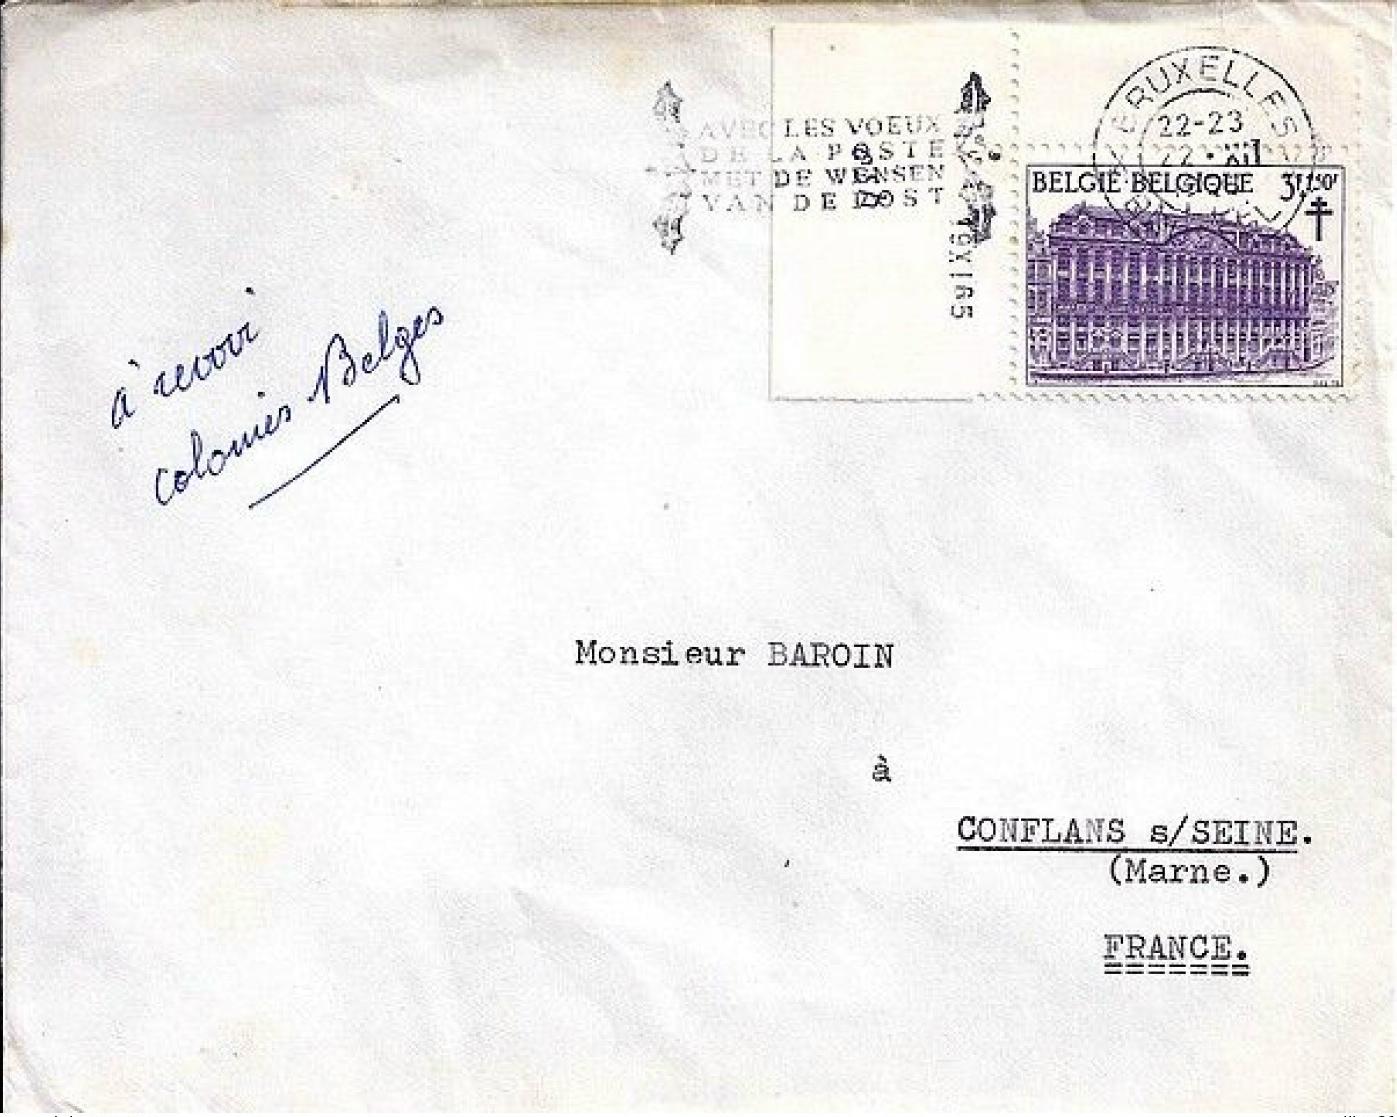 AVEC LES VOEUX
DE LA POSTE
MET DE WENSEN
VAN DE POST
BRUXELLES
22-23
BELGIË-BELGIQUE 3F1,50F
à revoir
colonies Belges
Monsieur BAROIN
à
CONFLANS s/SEINE.
(Marne.)
FRANCE.